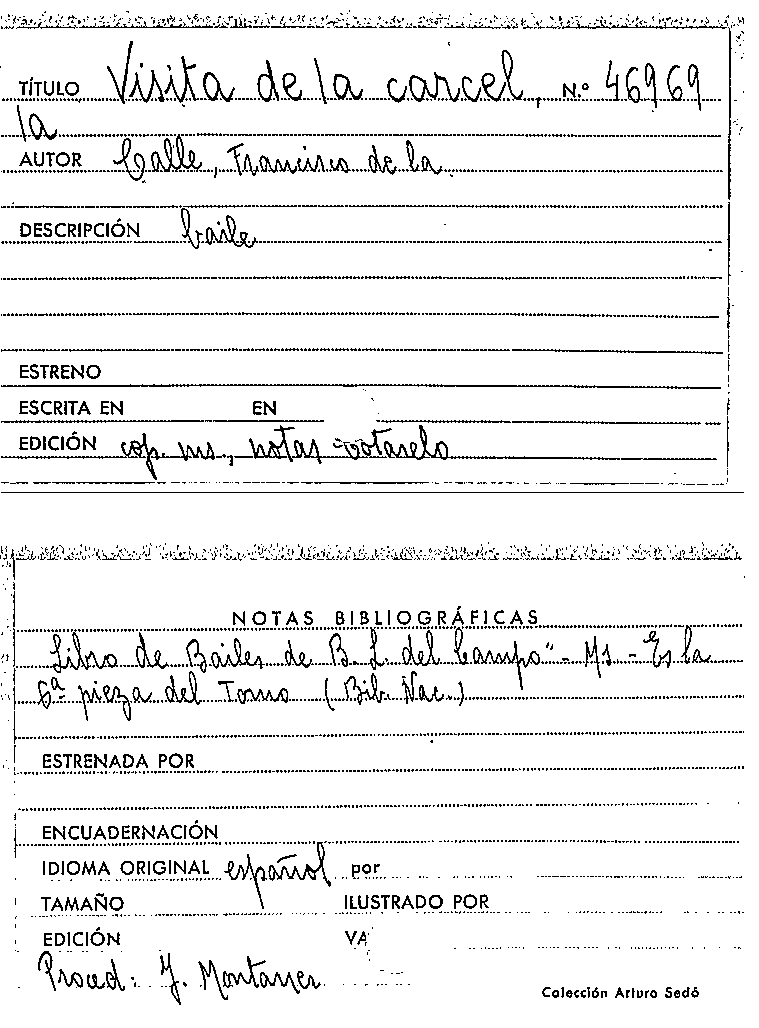 TÍTULO Visita de la carcel, N.º 46969
la
AUTOR Calle, Francisco de la
DESCRIPCIÓN baile
ESTRENO
ESCRITA EN EN
EDICIÓN cop. ms., notas Cotarelo
NOTAS BIBLIOGRÁFICAS
Libro de Bailes de B. L. del Campo" - Ms - Es la
6ª pieza del Tomo (Bib. Nac.)
ESTRENADA POR
ENCUADERNACIÓN
IDIOMA ORIGINAL español por
TAMAÑO ILUSTRADO POR
EDICIÓN VA
Proced: J. Montaner
Colección Arturo Sedó